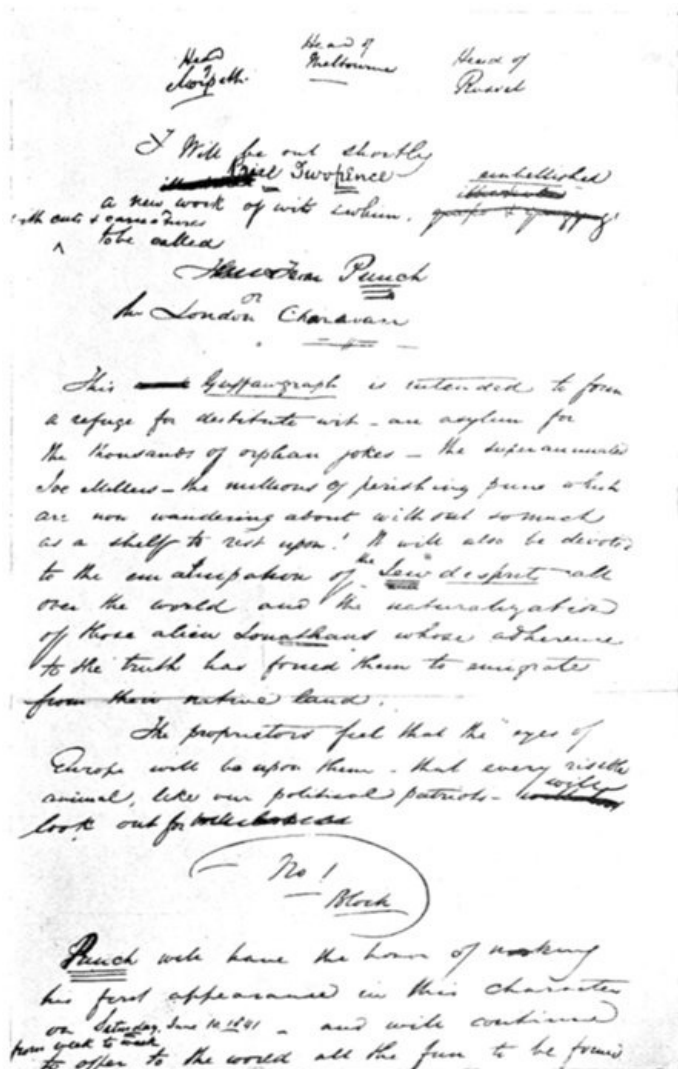 Head of
Morpeth
Head of
Melbourne
Head of
Russel
Will be out shortly
Price Twopence
embellished
a new work of wit & whim,
with cuts & caricatures
to be called
Punch
or
the London Charavari
This Guffawgraph is intended to form
a refuge for destitute wit – an asylum for
the thousands of orphan jokes – the superannuated
Joe Millers – the millions of perishing puns which
are now wandering about without so much
as a shelf to rest upon! It will also be devoted
to the emancipation of the "Jew desprit" all
over the world and the naturalization
of those alien Jonathans whose adherence
to the truth has forced them to emigrate
from their native land.
The proprietors feel that the "eyes of
Europe will be upon them – that every risible
animal, like our political patriots – will
look out for
No!
Block
Punch will have the honor of making
his first appearance in this character
on Saturday, June 10 1841 – and will continue
from week to week
to offer to the world all the fun to be found